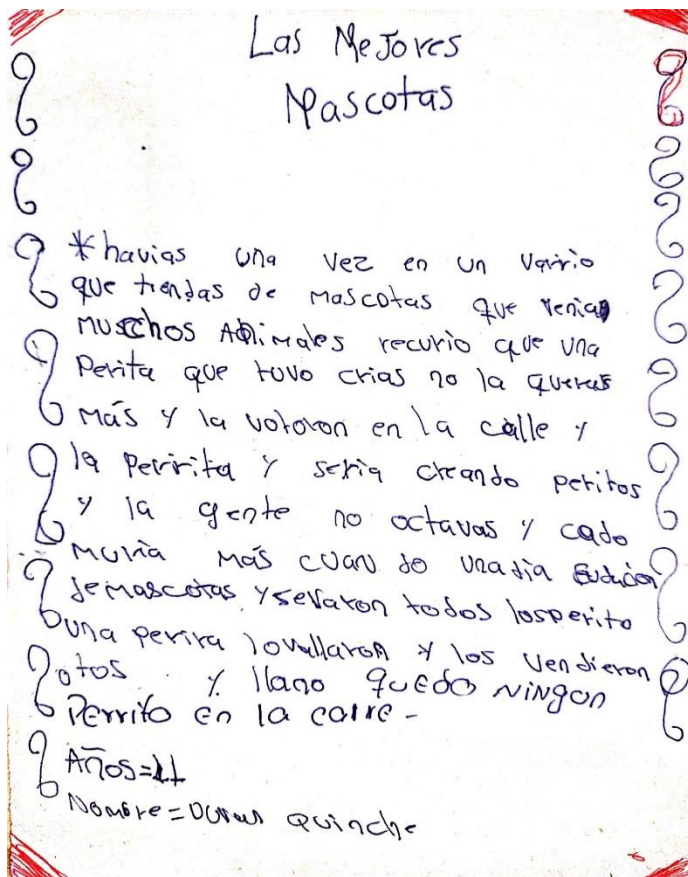 Las Mejores
Mascotas
*havias una vez en un varrio
que tiendas de mascotas que venian
muschos Animales recurio que una
Perita que tuvo crias no la queras
más y la votoron en la calle y
la peririta y seria creando peritos
y la gente no octavas y cado
muria más cuan do una dia
de mascotas y sevaron todos losperito
una perira lovallaron y los vendieron
otos y llano quedo ningon
Perrito en la calre-
Años=11
Nombre= Quinche